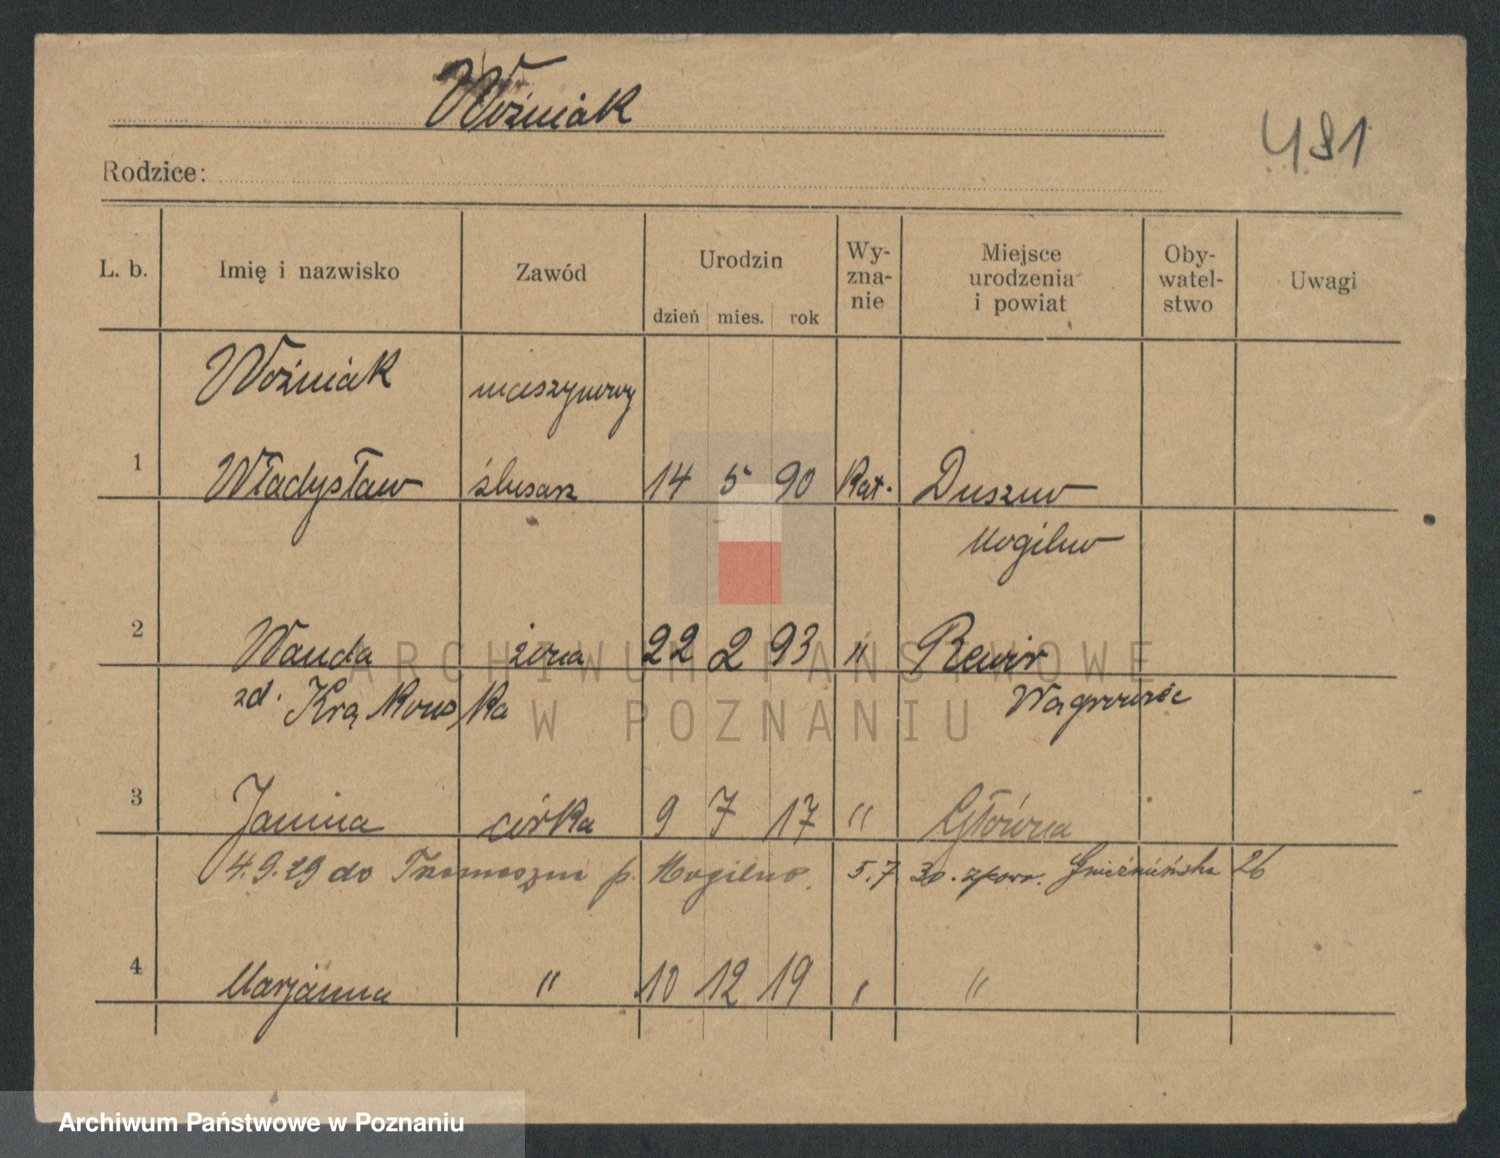 Woźniak
481
Rodzice:
L. b. Imię i nazwisko Zawód Urodzin dzień mies. rok Wy-zna-nie Miejsce urodzenia i powiat Oby-watel-stwo Uwagi
Woźniak maszynowy
1 Władysław ślusarz 14 5 90 Kat. Duszno
Mogilno
2 Wanda żona 22 2 93 " Rewir
zd. Krąkowska Wągrowiec
3 Janina córka 9 7 17 " Główna
4.9.29 do p. Mogilno. 5.7 30. zpow. Gnieźnieńska 26
4 Marjanna " 10 12 19 " "
ARCHIWUM PAŃSTWOWE
W POZNANIU
Archiwum Państwowe w Poznaniu